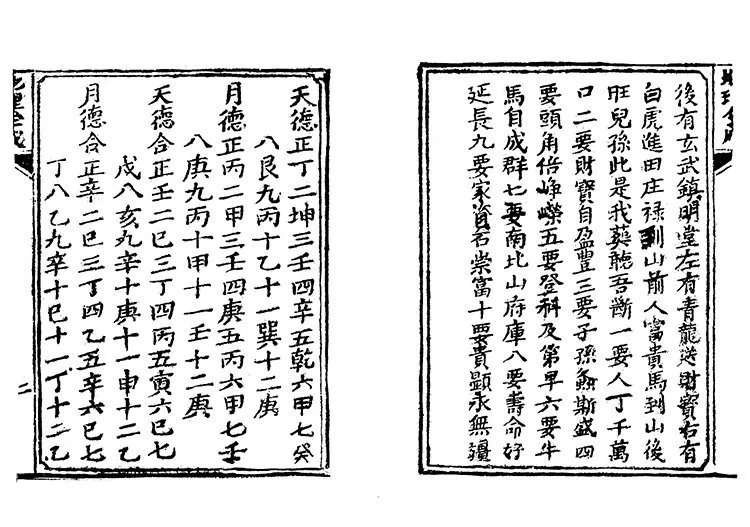 後有玄武鎮明堂左有青龍送財寶右有
白虎進田庄祿到山前人富貴馬到山後
旺兒孫此是我葬聽吾斷一要人丁千萬
口二要財寶自盈豐三要子孫螽斯盛四
要頭角倍崢嶸五要登科及第早六要牛
馬自成群七要南北山府庫八要壽命好
延長九要家資石崇富十要貴顯永無疆
天德正丁二坤三壬四辛五乾六甲七癸
八艮九丙十乙十一巽十二庚
月德正丙二甲三壬四庚五丙六甲七壬
八庚九丙十甲十一壬十二庚
天德合正壬二巳三丁四丙五寅六巳七
戊八亥九辛十庚十一申十二乙
月德合正辛二巳三丁四乙五辛六巳七
丁八乙九辛十巳十一丁十二乙
二